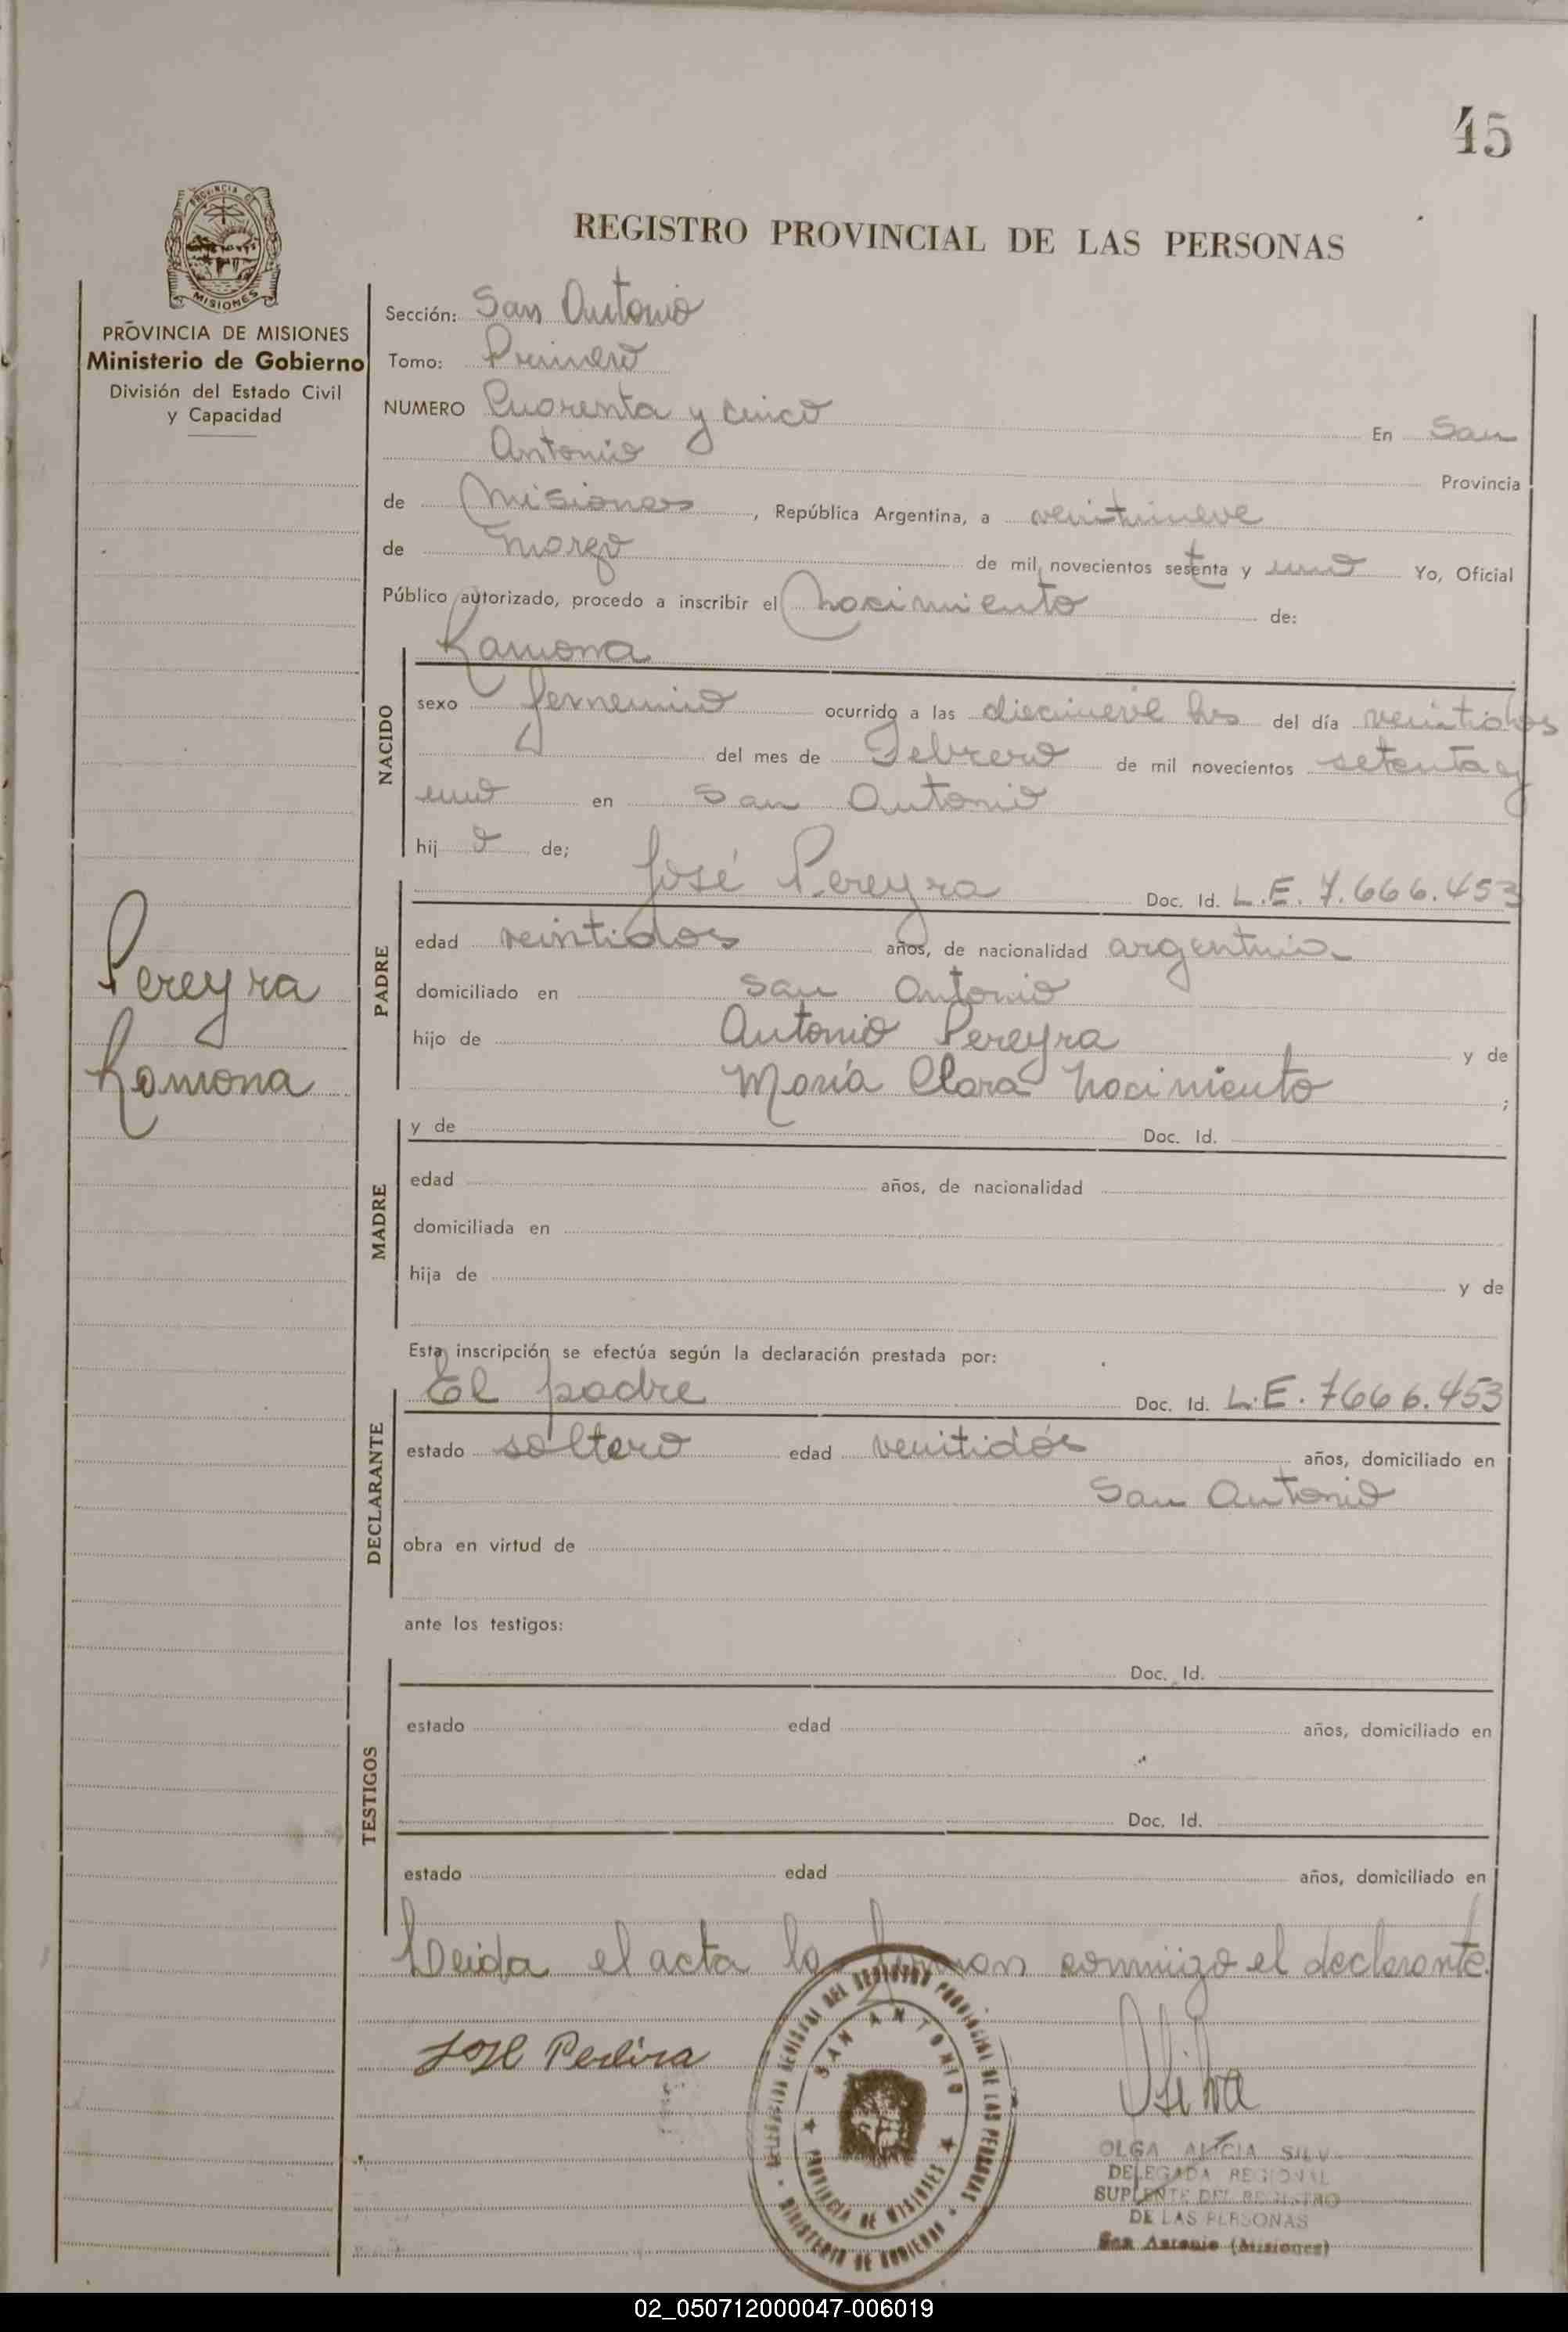 45
PROVINCIA DE
MISIONES
REGISTRO PROVINCIAL DE LAS PERSONAS
PROVINCIA DE MISIONES
Ministerio de Gobierno
División del Estado Civil
y Capacidad
Sección: San Antonio
Tomo: Primero
NUMERO Cuarenta y cinco En San
Antonio Provincia
de Misiones, República Argentina, a veintinueve
de marzo de mil novecientos setenta y uno Yo, Oficial
Público autorizado, procedo a inscribir el nacimiento de:
Ramona
NACIDO
sexo femenino ocurrido a las diecinueve hs del día veintidos
del mes de Febrero de mil novecientos setenta y
uno en San Antonio
hij o de;
José Pereyra Doc. Id. L.E. 7.666.453
PADRE
edad veintidos años, de nacionalidad argentino
domiciliado en San Antonio
hijo de Antonio Pereyra y de
María Clara Nacimiento ;
Pereyra
Ramona
y de Doc. Id.
MADRE
edad años, de nacionalidad
domiciliada en
hija de y de
Esta inscripción se efectúa según la declaración prestada por:
El padre Doc. Id. L.E. 7666.453
DECLARANTE
estado soltero edad veintidós años, domiciliado en
San Antonio
obra en virtud de
ante los testigos:
Doc. Id.
TESTIGOS
estado edad años, domiciliado en
Doc. Id.
estado edad años, domiciliado en
Leida el acta la firman conmigo el declarante.
José Pereira
OSilva
SAN ANTONIO
PROVINCIA DE MISIONES
MINISTERIO DE GOBIERNO
DEL REGISTRO PROVINCIAL DE LAS PERSONAS
OLGA ALICIA SILV
DELEGADA REGIONAL
SUPLENTE DEL REGISTRO
DE LAS PERSONAS
San Antonio (Misiones)
02_050712000047-006019